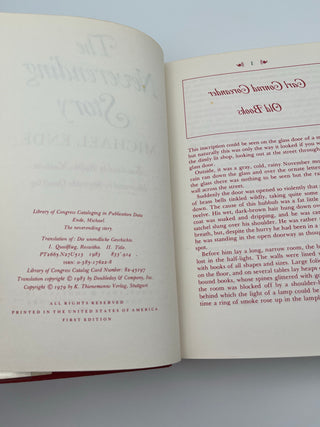 The
Neverending
Story
MICHAEL ENDE
Library of Congress Cataloging in Publication Data
Ende, Michael.
The neverending story.
Translation of: Die unendliche Geschichte.
I. Title.
1983
Copyright © 1979 by K. Thienemanns Verlag, Stuttgart
ALL RIGHTS RESERVED
PRINTED IN THE UNITED STATES OF AMERICA
FIRST EDITION
1
Carl Conrad Coreander
Old Books
This inscription could be seen on the glass door of a sma
but naturally this was only the way it looked if you w
the dimly lit shop, looking out at the street through
glass door.
Outside, it was a gray, cold, rainy November mo
rain ran down the glass and over the ornate letters
the glass there was nothing to be seen but the ra
wall across the street.
Suddenly the door was opened so violently that
of brass bells tinkled wildly, taking quite some
down. The cause of this hubbub was a fat little
twelve. His wet, dark-brown hair hung down over
coat was soaked and dripping, and he was car
satchel slung over his shoulder. He was rather
breath, but, despite the hurry he had been in a
he was standing in the open doorway as though
spot.
Before him lay a long, narrow room, the b
lost in the half-light. The walls were lined
with books of all shapes and sizes. Large foli
on the floor, and on several tables lay heaps
bound books, whose spines glittered with go
the room was blocked off by a shoulder-h
behind which the light of a lamp could be
time a ring of smoke rose up in the lampl